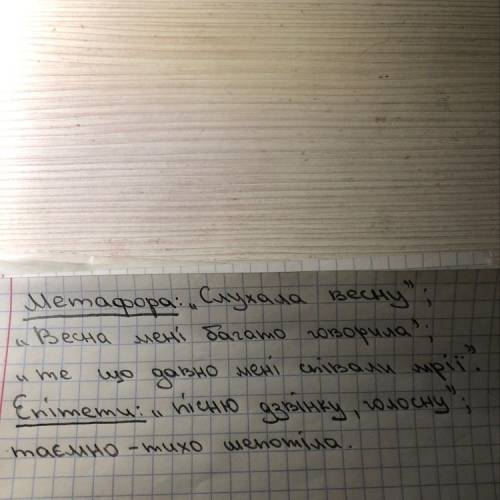 Метафора: „Слухала весну”;
„Весна мені багато говорила”;
„те що давно мені співали мрії”.
Епітети: „пісню дзвінку, голосну”;
таємно-тихо шепотіла.